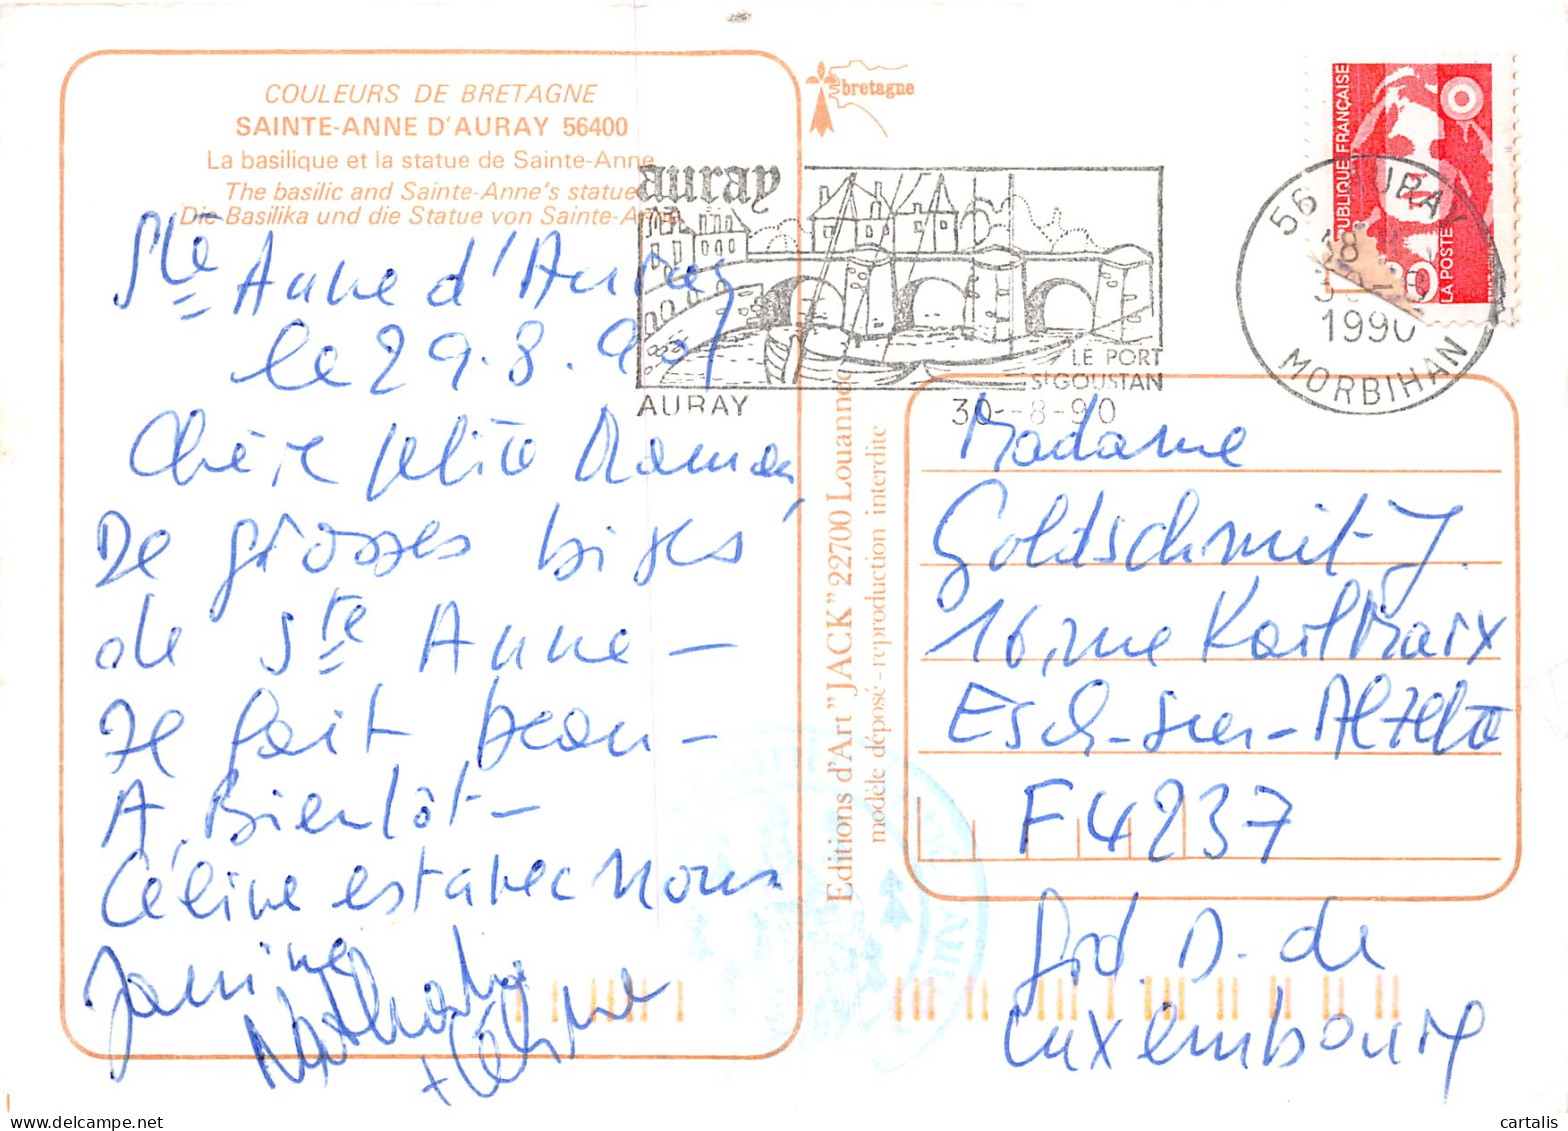 COULEURS DE BRETAGNE
SAINTE-ANNE D'AURAY 56400
La basilique et la statue de Sainte-Anne
The basilic and Sainte-Anne's statue
Die Basilika und die Statue von Sainte-Anne
Ste Anne d'Auray
le 29.8.90
Chère petite Maman
De grosses bises
de Ste Anne -
Il fait beau -
A Bientôt -
Céline est avec nous
Janine
Nathalie
+ Céline
bretagne
auray
LE PORT
St GOUSTAN
AURAY
30--8-90
RÉPUBLIQUE FRANÇAISE
LA POSTE
56 AURAY
18
1990
MORBIHAN
Editions d'Art "JACK" 22700 Louannec
modèle déposé - reproduction interdite
Madame
Goldschmit J.
16, rue Karl Marx
Esch-sur-Alzette
F 4237
Grd. D. de
Luxembourg
cartalis
www.delcampe.net